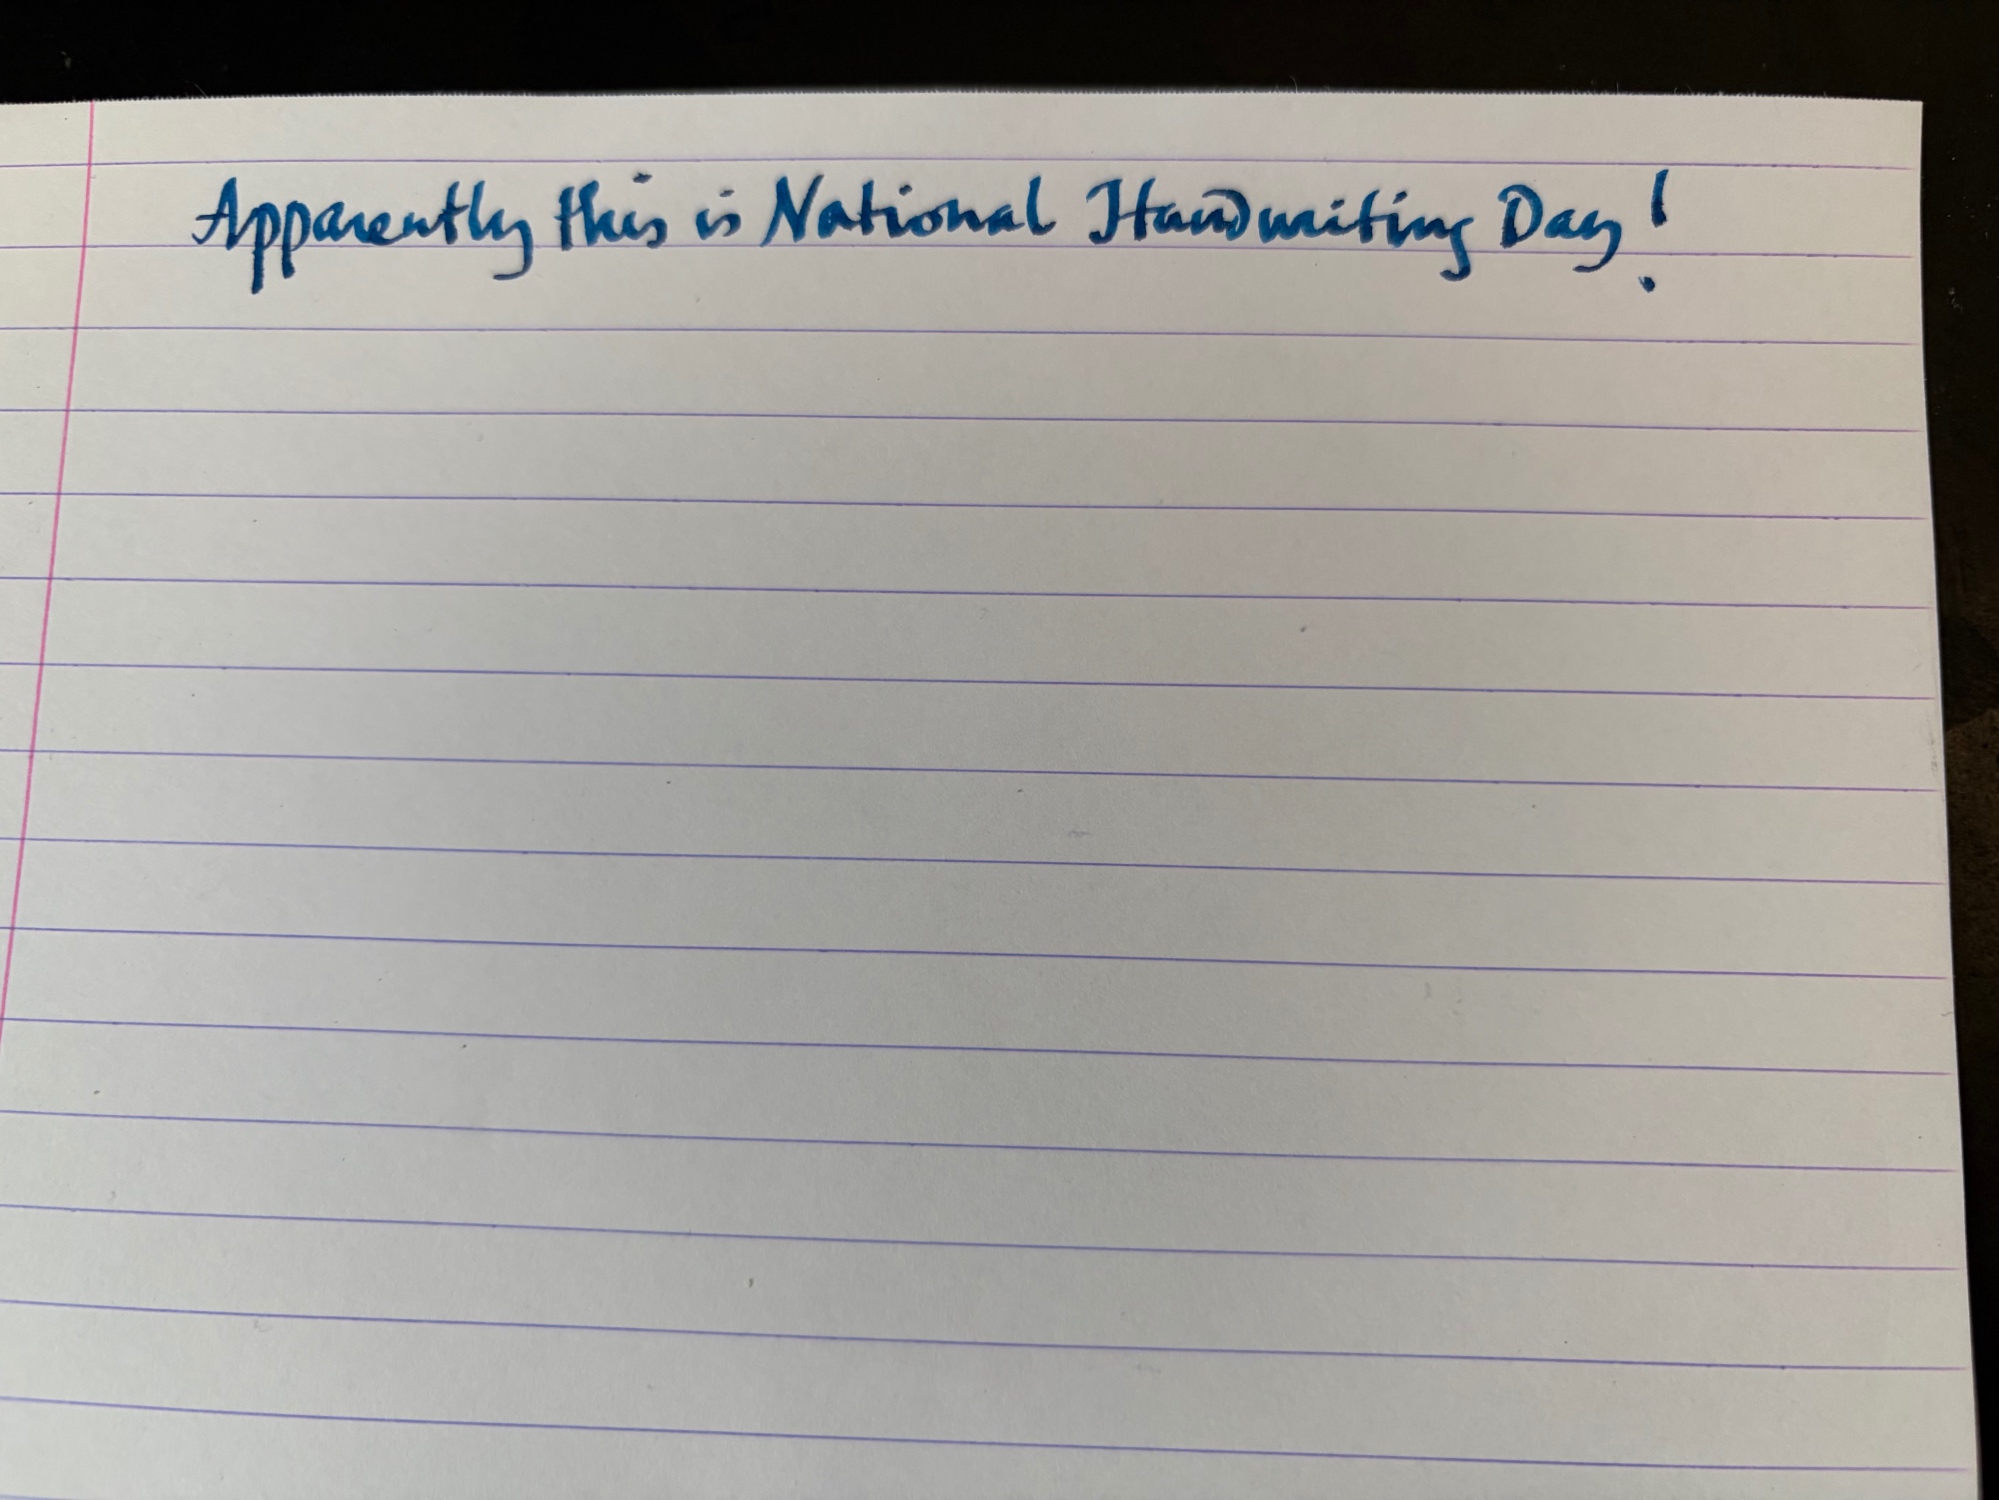 Apparently this is National Handwriting Day!